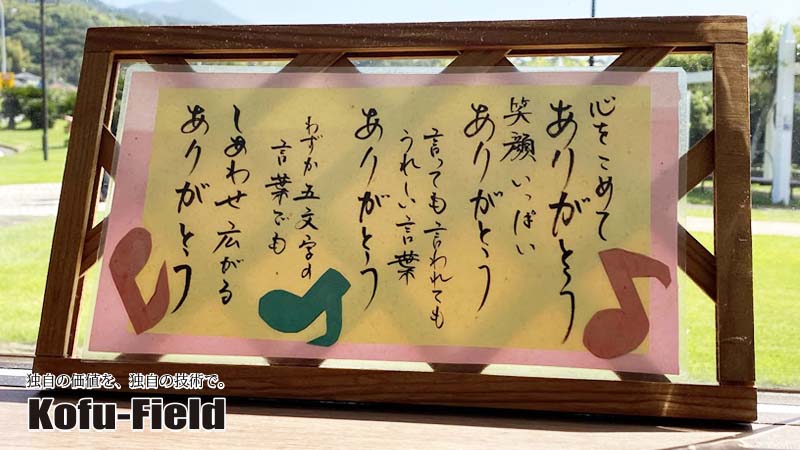 心をこめて
ありがとう
笑顔いっぱい
ありがとう
言っても言われても
うれしい言葉
ありがとう
わずか五文字の
言葉でも
しあわせ広がる
ありがとう
独自の価値を、独自の技術で。
Kofu-Field